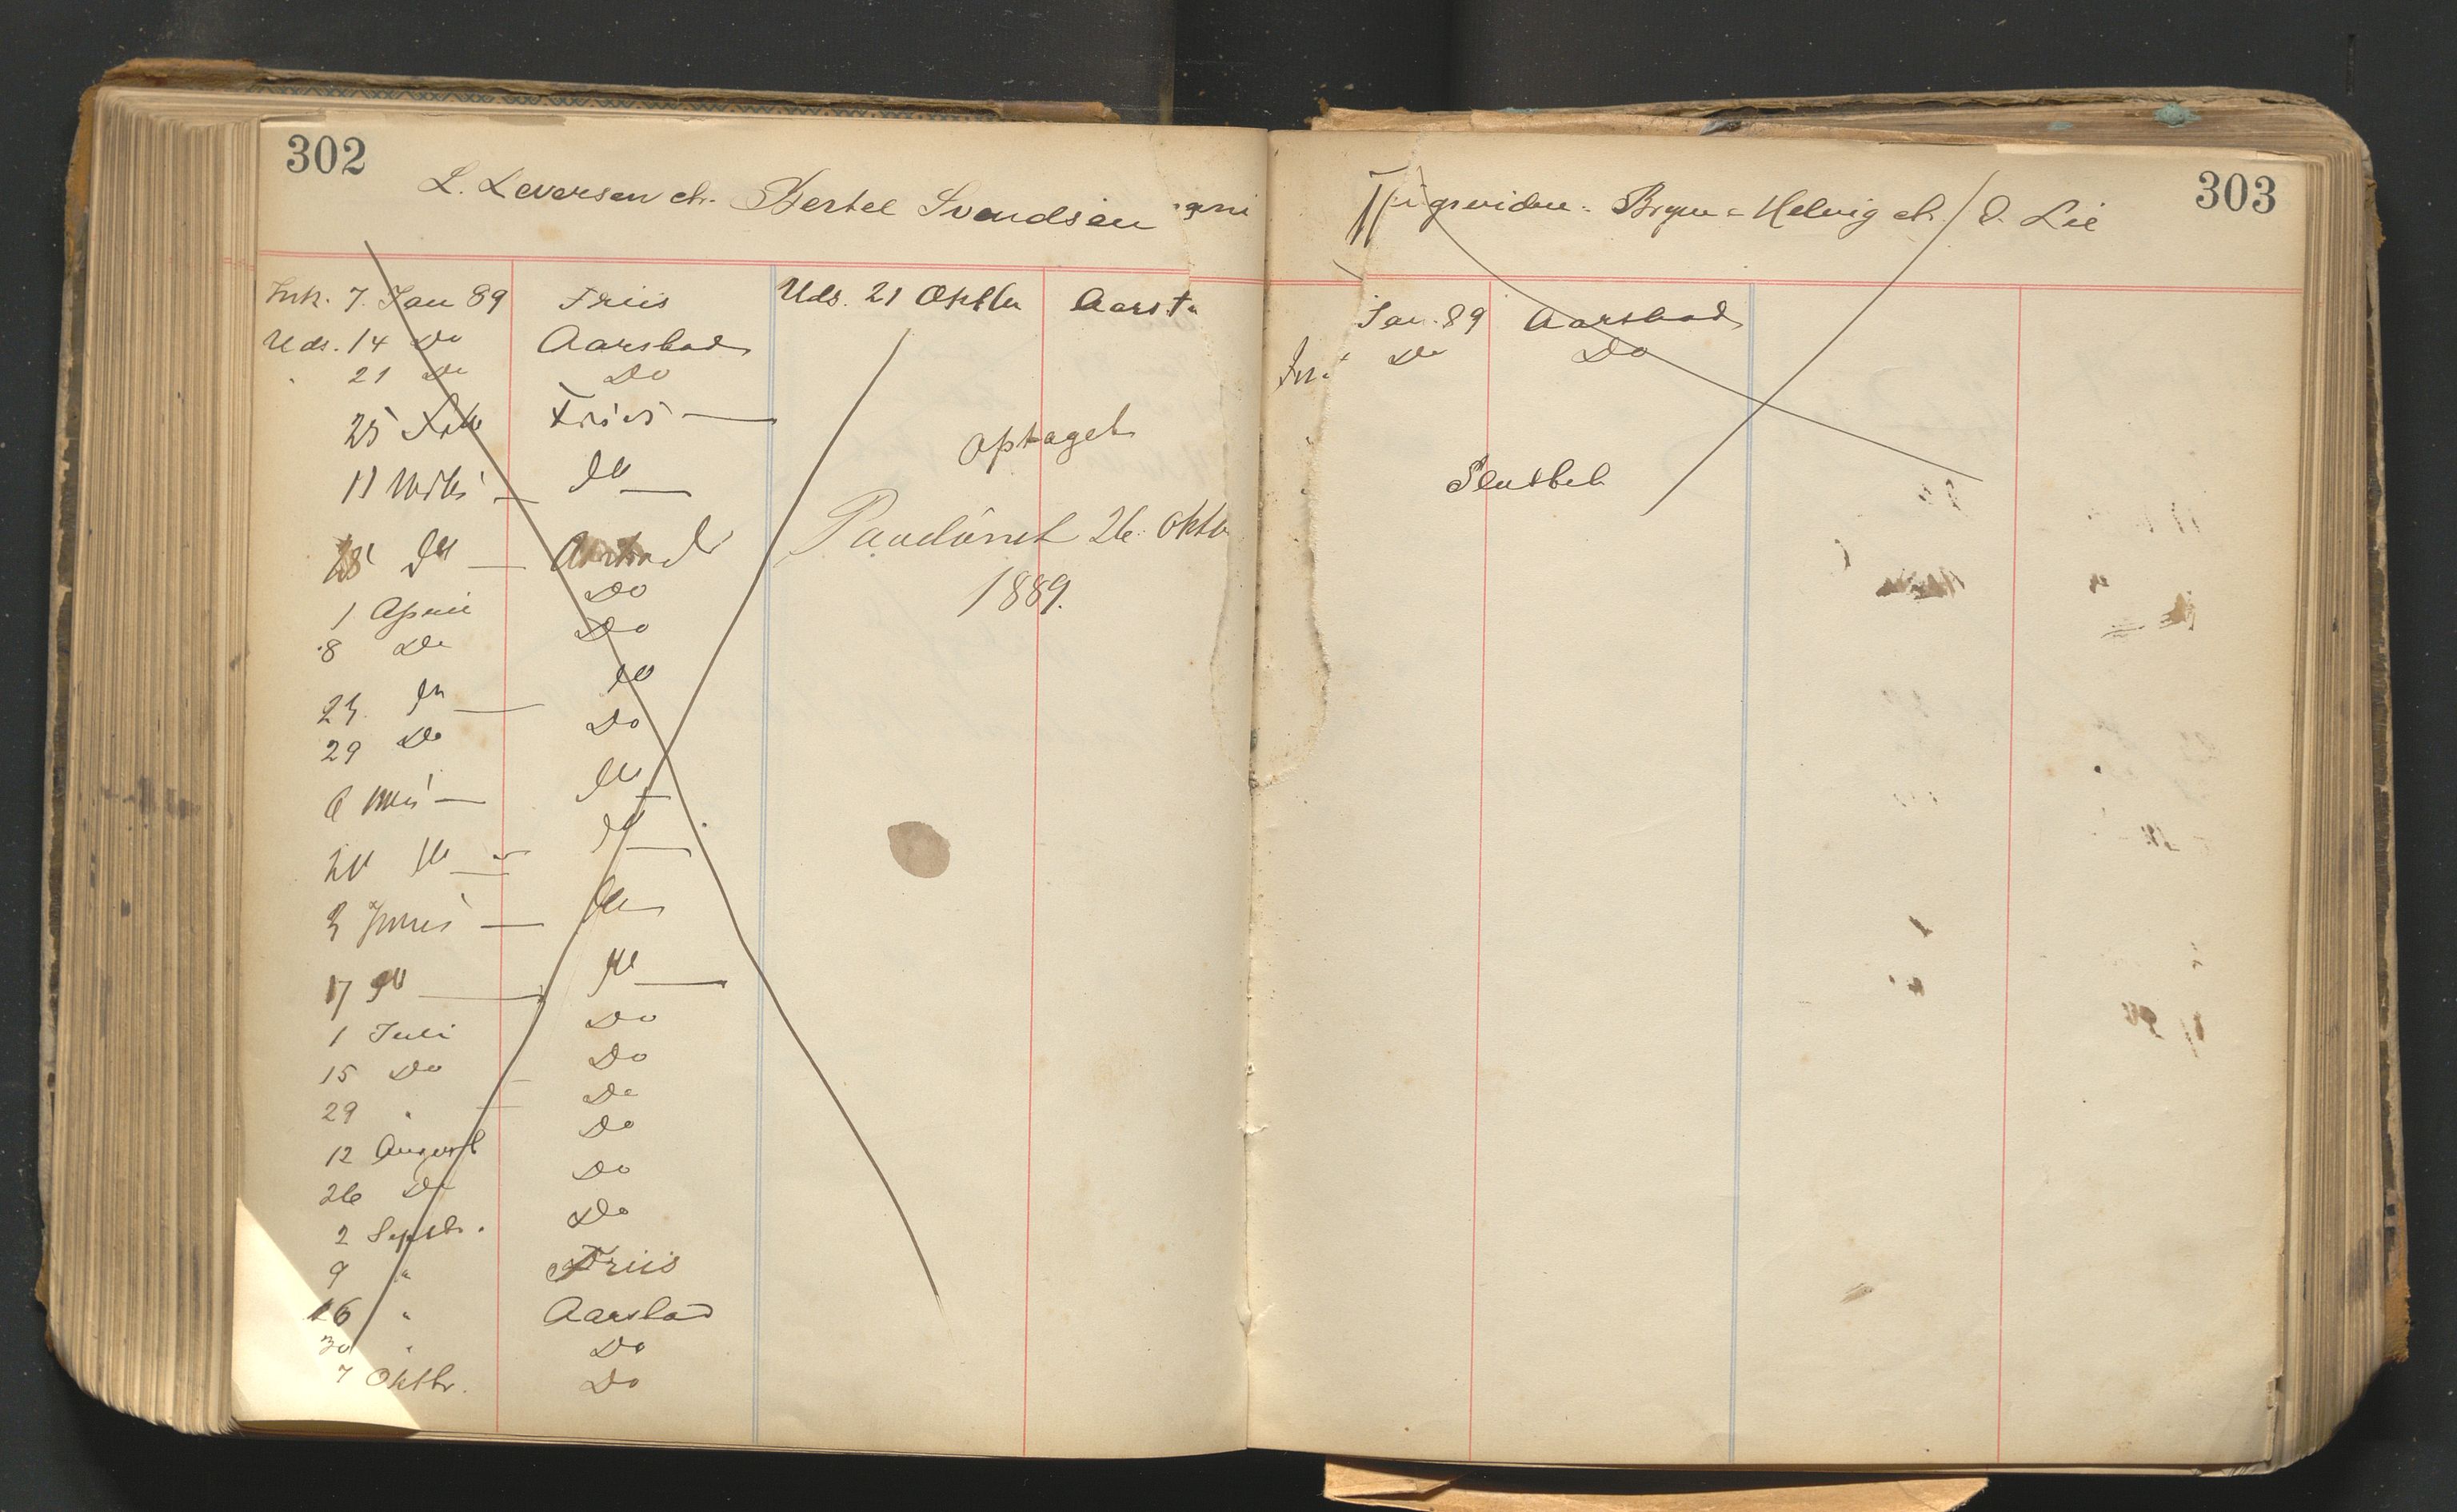 302
L. Leversen ctr. Bertel Svendsen
Ink. 7. Jan 89 Friis
Uds. 14 Do Aarstad
21 Do Do
25 Feb Friis
11 Marts do
28 do Aarstad
1 April Do
8 Do Do
23 do do
29 Do Do
6 Mai do
20 do do
3 Juni do
17 do do
1 Juli Do
15 Do Do
29 " Do
12 August Do
26 Do Do
2 Septbr. Do
9 " Friis
16 " Aarstad
30 " Do
7 Oktbr. Do
Uds. 21 Oktbr Aarsta
optaget
26. Oktb
1889.
303
Brynn = Helvig ctr. O. Lie
Jan. 89 Aarstad
Do Do
Sluttet